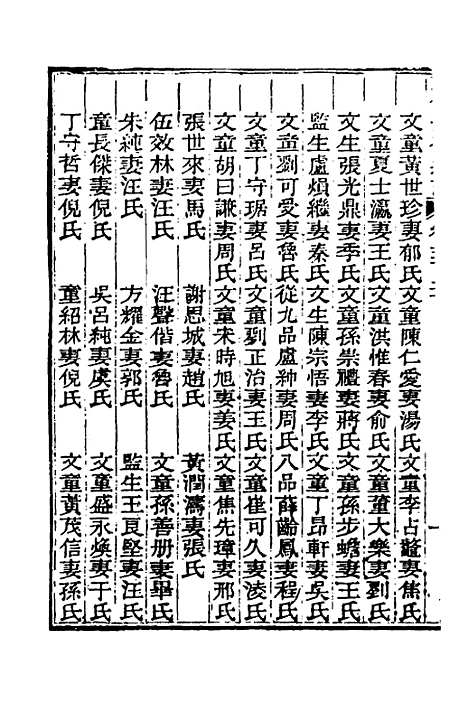 文童黃世珍妻郁氏文童陳仁愛妻湯氏文童李占鼇妻焦氏
文童夏士瀛妻王氏文童洪惟春妻俞氏文童董大樂妻劉氏
文生張光鼎妻季氏文童孫崇禮妻蔣氏文童孫步蟾妻王氏
監生盧煩繼妻秦氏文生陳宗悟妻李氏文童丁昂軒妻吳氏
文童劉可愛妻魯氏從九品盧紳妻周氏八品薛齡鳳妻程氏
文童丁守琚妻呂氏文童劉正治妻王氏文童崔可久妻淩氏
文童胡曰謙妻周氏文童宋時旭妻姜氏文童焦先璋妻邢氏
張世來妻馬氏 謝恩城妻趙氏 黃潤濤妻張氏
伍效林妻汪氏 汪聲偕妻魯氏 文童孫善册妻畢氏
朱純妻汪氏 方耀金妻郭氏 監生王良堅妻汪氏
童長傑妻倪氏 吳呂純妻虞氏 文童盛永煥妻于氏
丁守哲妻倪氏 童紹林妻倪氏 文童黃茂信妻孫氏